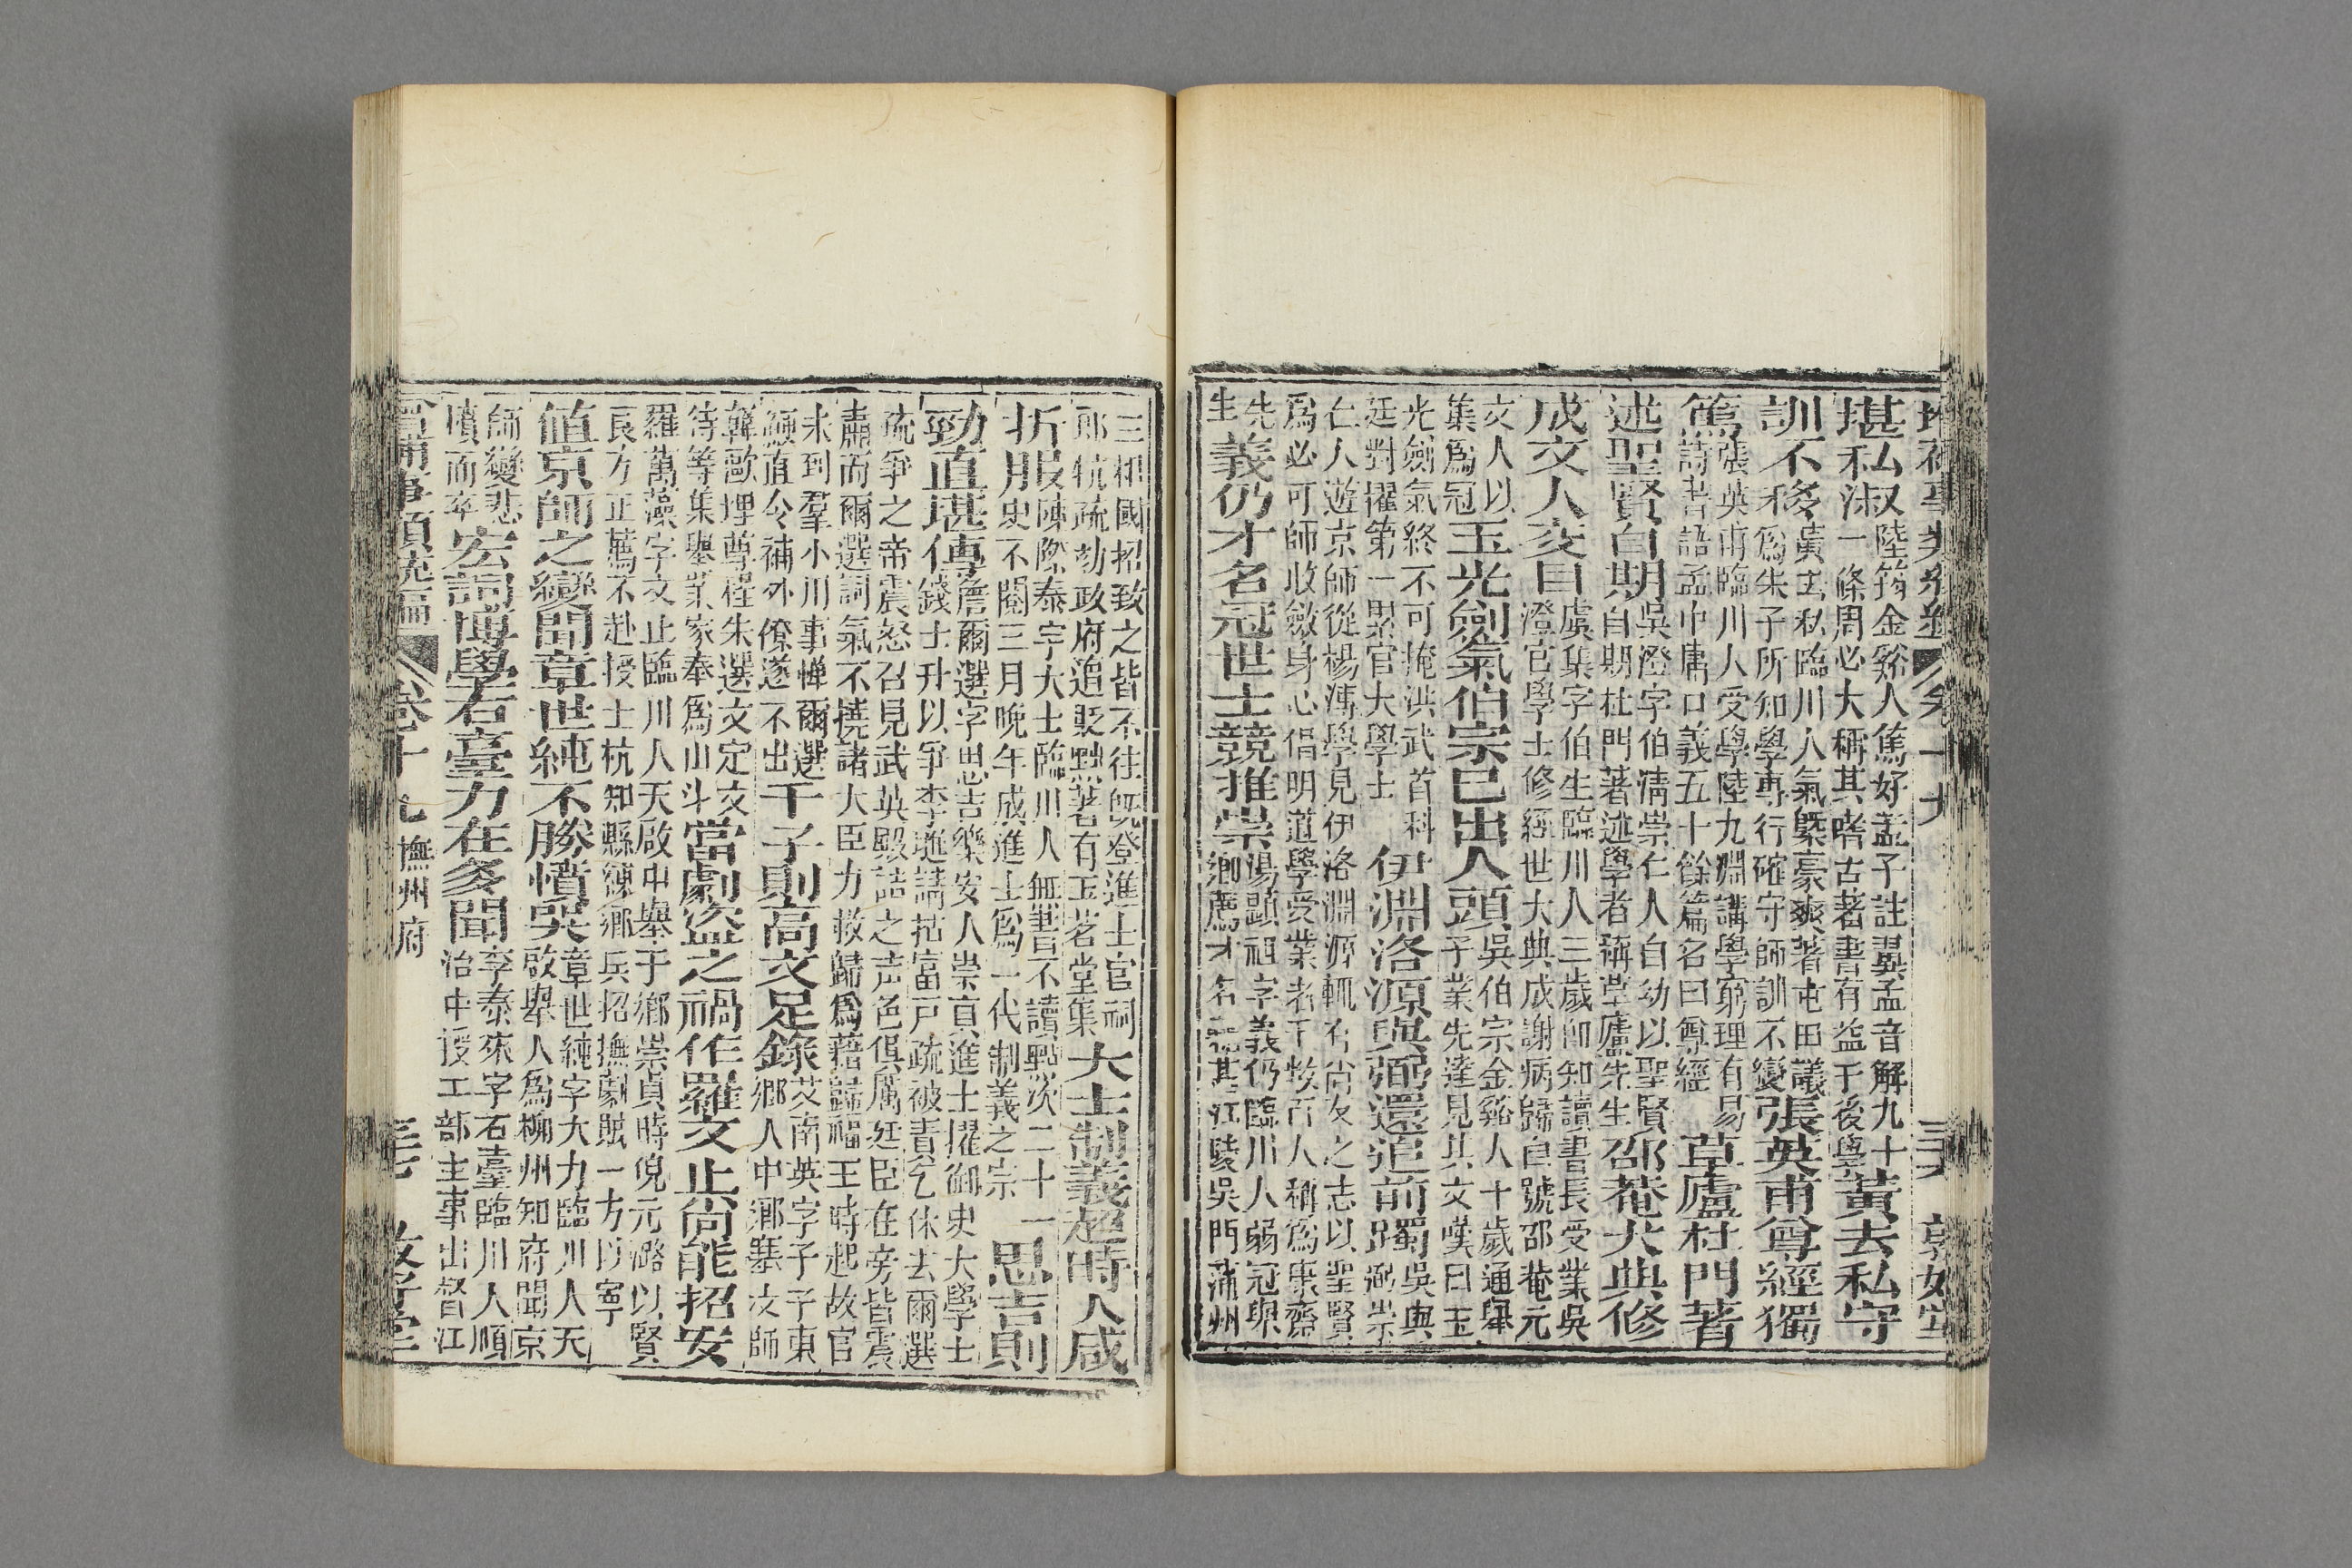 堪私淑陸筠金谿人篤好孟子註翼孟音解九十一條周必大稱其嗜古著書有益于後學黃去私守
訓不移黃去私臨川人氣槩豪爽著屯田議為朱子所知學專行確守師訓不變張英甫尊經獨
篤張英甫臨川人受學陸九淵講學窮理有易詩書語孟中庸口義五十餘篇名曰尊經草廬杜門著
述聖賢自期吳澄字伯清崇仁人自幼以聖賢自期杜門著述學者稱草廬先生邵菴大典修
成文人交目虞集字伯生臨川人三歲卽知讀書長受業吳澄官學士修經世大典成謝病歸自號邵菴元
文人以集爲冠玉光劍氣伯宗已出人頭吳伯宗金谿人十歲通舉子業先達見其文嘆曰玉
光劍氣終不可掩洪武首科廷對擢第一累官大學士伊淵洛源與弼還追前躅吳與弼崇
仁人遊京師從楊溥學見伊洛淵源輒有尚友之志以聖賢爲必可師收斂身心倡明道學受業者千數百人稱爲康齋
先生義仍才名冠世士競推崇湯顯祖字義仍臨川人弱冠舉鄉薦才名甚江陵吳門蒲州
三相國招致之皆不往旣登進士官祠郎抗疏劾政府追貶黜著有玉茗堂集大士制義超時人咸
折服陳際泰字大士臨川人無書不讀點次二十一史不閱三月晚年成進士爲一代制義之宗思吉則
勁直堪傳詹爾選字思吉樂安人崇貞進士擢御史大學士錢士升以爭李璡請括富戶疏被責乞休去爾選
疏爭之帝震怒召見武英殿詰之声色俱厲廷臣在旁皆震肅而爾選詞氣不撓諸大臣力救歸爲藉歸福王時起故官
未到羣小川事憚爾選頑直令補外僚遂不出千子則高文足錄艾南英字千子東鄉人中鄉塞文師
韓歐埋尊程朱選文定文待等集舉業家奉爲山斗當劇盜之禍作羅文止尚能招安
羅萬藻字文止臨川人天啟中舉于鄉崇貞時倪元潞以賢良方正薦不赴授士杭知縣練鄉兵招撫劇賊一方以寧
値京師之變聞章世純不勝憤哭章世純字大力臨川人天啟舉人爲柳州知府聞京
師變悲憤而卒宏詞博學石臺力在多聞李泰來字石臺臨川人順治中授工部主事出督江
卷十九 撫州府